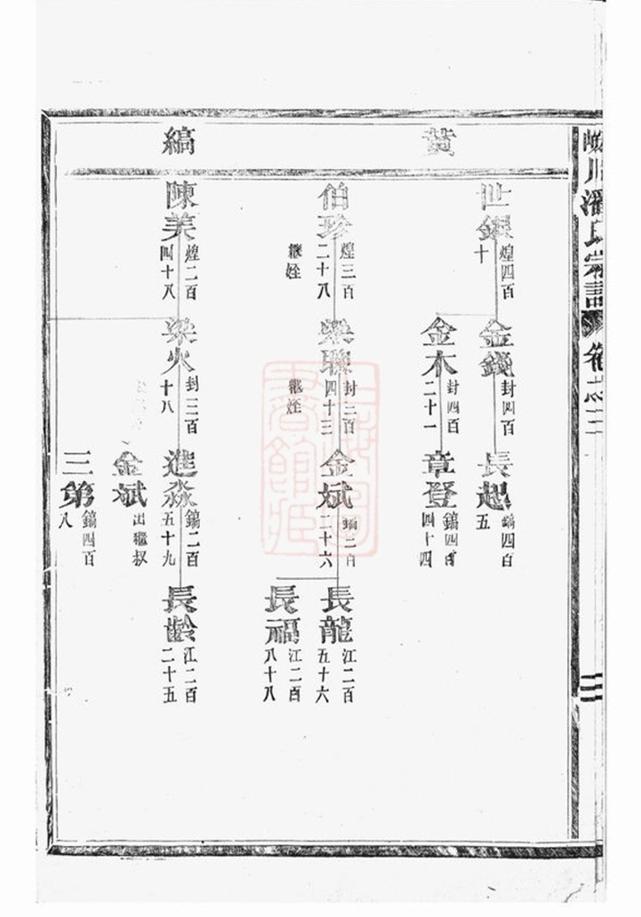 川潘氏宗譜 卷之 三
黃
縞
世銀 煌四百十
金錢 封四百
金木 封四百二十一
長起 鎬四百五
章登 鎬四百四十四
伯珍 煌三百二十八 繼姪
梁聯 封三百四十三 繼姪
金斌 鎬二百二十六
長龍 江二百五十六
長福 江二百八十八
陳美 煌二百四十八
梁火 封三百十八
進淼 鎬二百五十九
金斌 出繼叔
三第 鎬四百八
長齡 江二百二十五